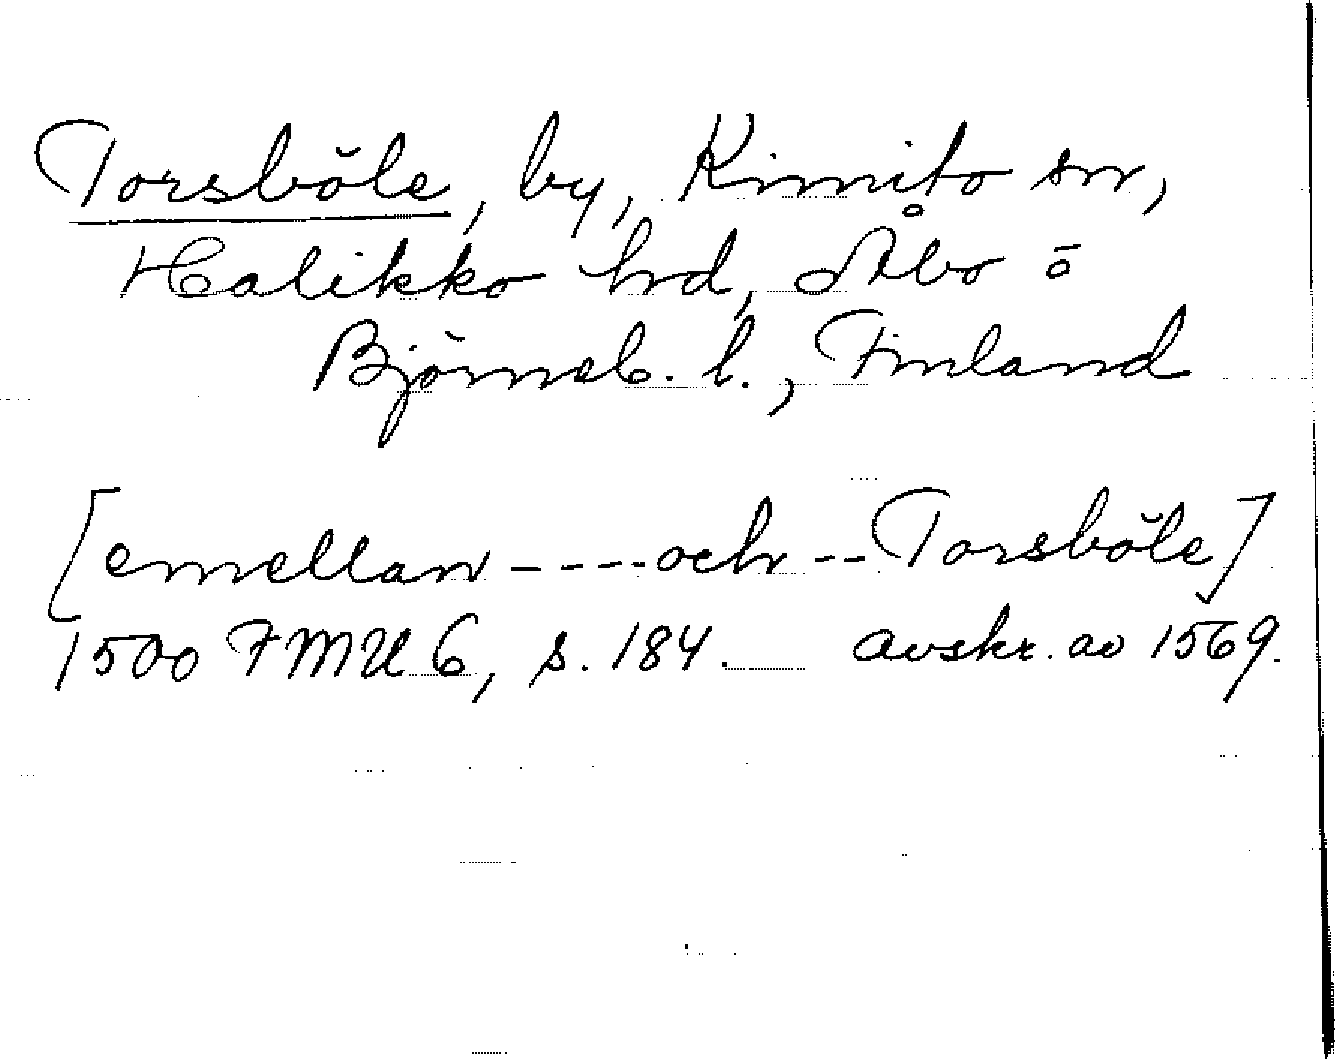 Torsböle, by, Kimito sn,
Halikko hd, Åbo ö
Björneb. l., Finland
[emellan ---- och -- Torsböle]
1500 FMU 6, s. 184. avskr. av 1569.